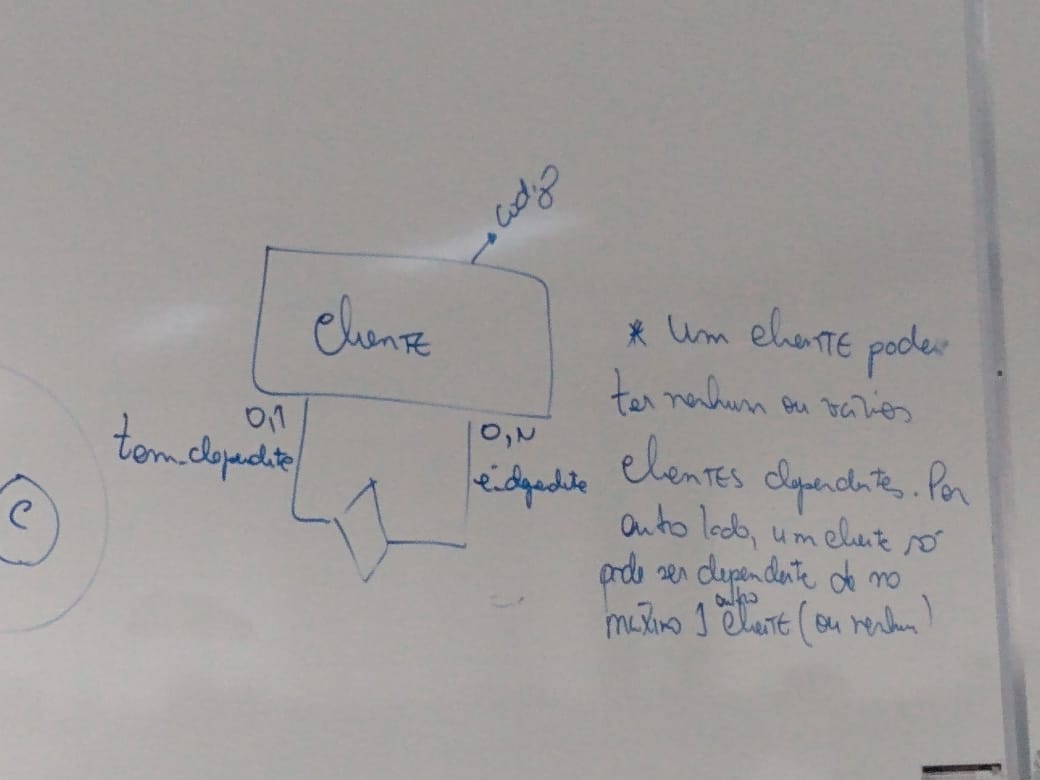 cod:8
Cliente
0,1
0,N
tem-dependite
é dependite
C
* Um cliente poder
ter nenhum ou vários
clientes dependentes. Por
outro lado, um cliente só
pode ser dependente de no
outro
máximo 1 cliente (ou nenhum)